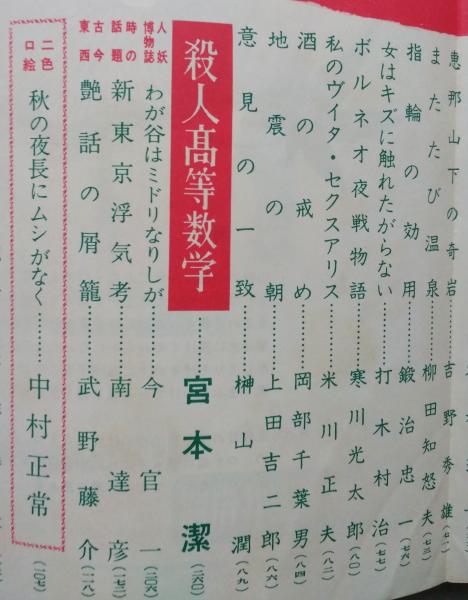 恵那山下の奇岩……吉野秀雄(七一)
またたび温泉……柳田知怒夫(七三)
指輪の効用……鍛治忠一(七六)
女はキズに触れたがらない……打木村治(七七)
ボルネオ夜戦物語……寒川光太郎(八〇)
私のヴイタ・セクスアリス……米川正夫(八二)
酒の戒め……岡部千葉男(八四)
地震の朝……上田吉二郎(八六)
意見の一致……榊山潤(八九)
殺人高等数学……宮本潔(二六〇)
人妖博物誌 わが谷はミドリなりしが……今官一(二〇六)
時の話題 新東京浮気考……南達彦(一七二)
古今東西 艶話の屑籠……武野藤介(一一八)
二色口絵 秋の夜長にムシがなく……中村正常(一〇七)